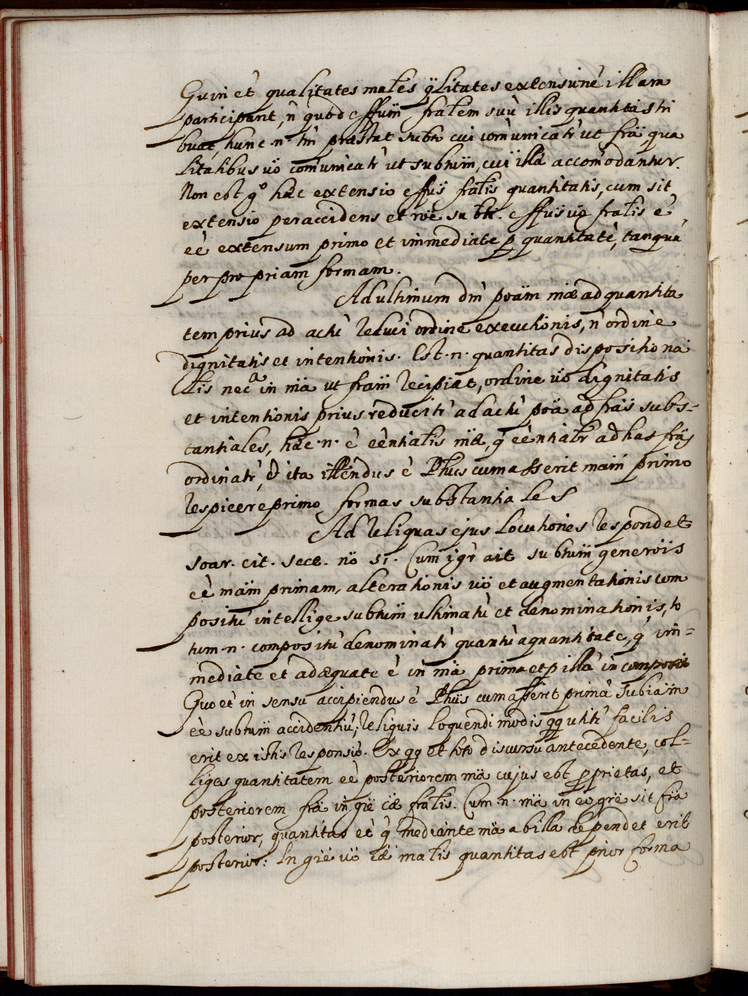 Quin et qualitates mãles q̃litates extensiunẽ illam
participant, ñ quod effum̃ fr̃alem suũ illis quantitas tri
buat, hunc .n. tm̃ præstat subto cui com̃unicatr̃ ut frã̃ qua
litatibus uo com̃unicatr̃ ut subtum̃, cui illã accom̃odantur.
Non est gº hæc extensio effus̃ fr̃alis quantitatis, cum sit
extensio per accidens et rõe subti. effus̃ uo fr̃alis ẽ
eẽ extensum primo et immediate p̃ quantitatẽ, tanquã
per propriam formam.
Ad ultimum dm̃ poãm mæ ad quantita
tem prius ad actũ reduci ordine executionis, ñ ordine
dignitatis et intentionis. Est .n. quantitas dispositio na
lis necª in mã ut frã̃m recipiat, ordine uo dignitatis
et intentionis prius reducitr̃ ad actũ poã ad frã̃s subs-
tantiales, hæc .n. ẽ eẽntialis mæ, q̃ eẽntialr̃ ad has frã̃s
ordinatr̃, & ita illendus ẽ Phus cum asserit mãm primo
respicere primo formas substantiales
Ad reliquas ejus locutiones respondet
soar. cit. sect. nõ 51. Cum igr̃ ait subtum̃ generõis
eẽ mãm primam, alterationis uo et augmentationis com
positũ intellige subtum̃ ultimatũ et denominationis, to
tum .n. compositũ denominatr̃ quantũ a quantitate, q̃ im-
mediate et adæquate ẽ in mã prima et p illã in composit
Quo et in sensu accipiendus ẽ Phus cum asserit primã subiam
eẽ subtum̃ accidentiũ; reliquis loquendi modis facilis
erit ex istis responsio. Ex qq et toto discursu antecedente col-
liges quantitatem eẽ posteriorem mã cujus est p̃prietas, et
posteriorem frã̃ in gr̃e cæ fr̃alis. Cum .n. mã in eo gr̃e sit frã̃
posterior, quantitas et q̃ mediante mã ab illa dependet erit
posterior: In gr̃e uo cæ mãlis quantitas est prior forma